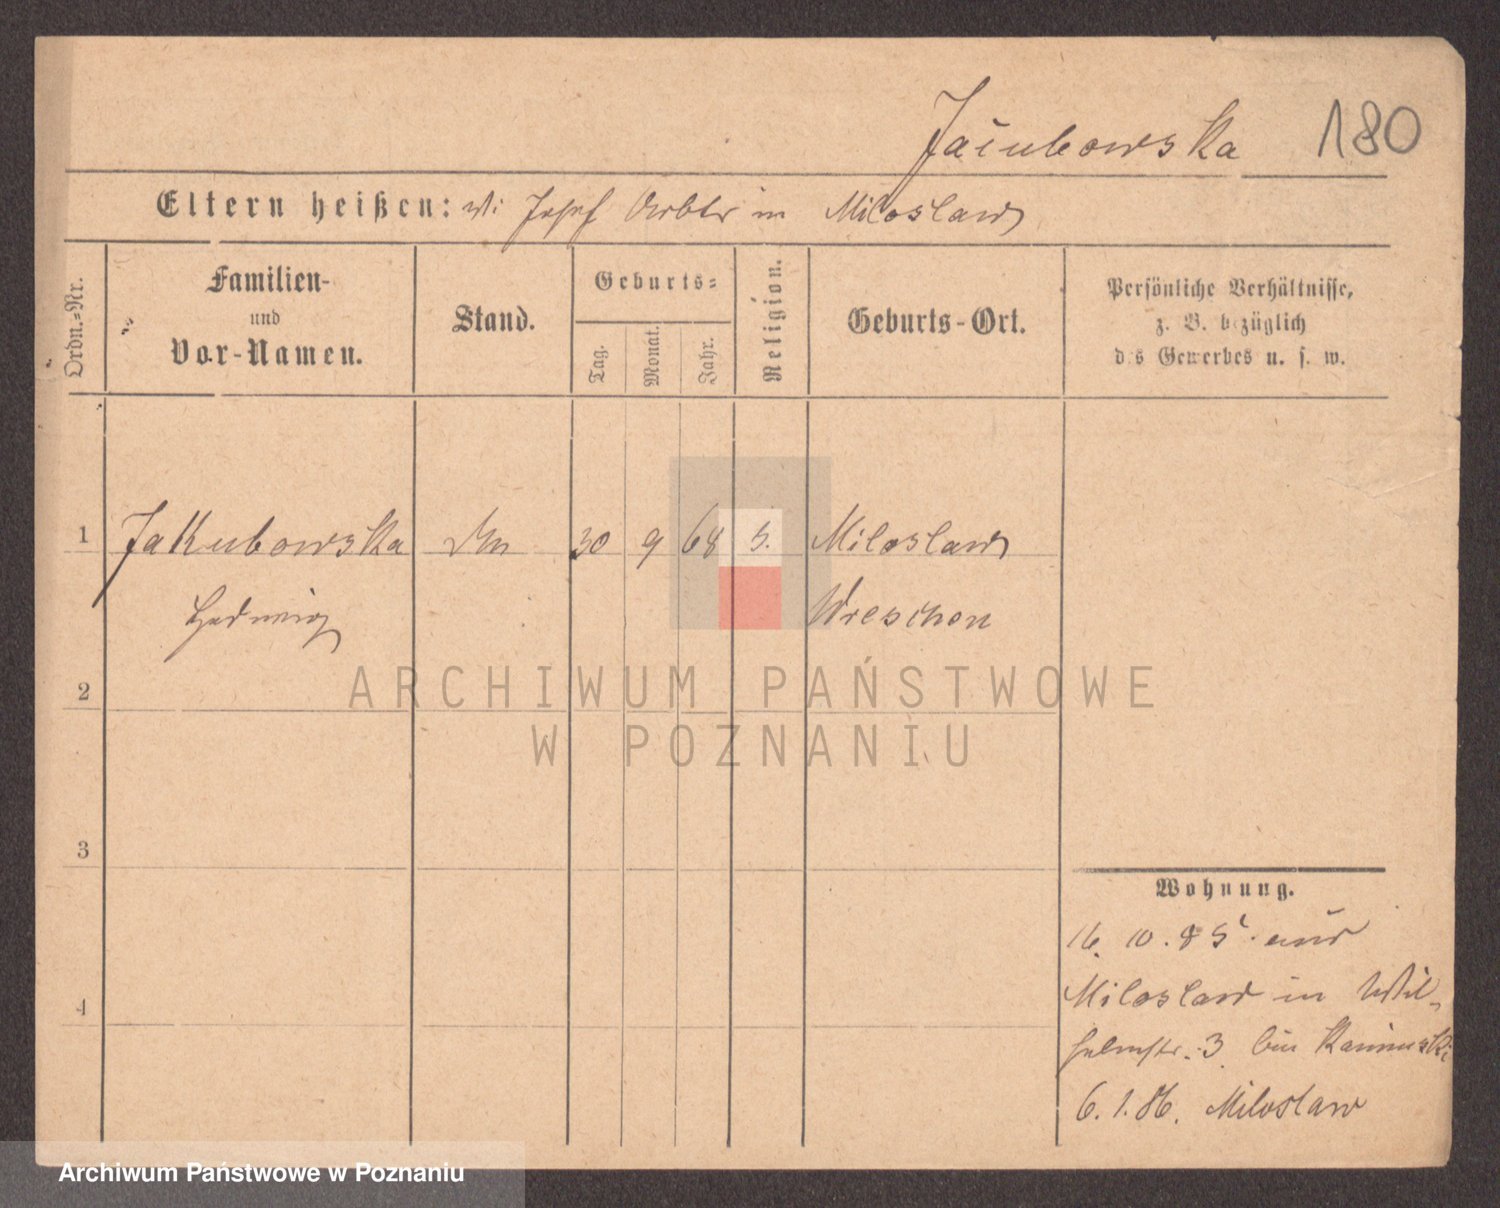 Jakubowska 180
Eltern heißen: Josef in Miloslaw
Ordn.=Nr.
Familien-
und
Vor-Namen.
Stand.
Geburts=
Tag.
Monat.
Jahr.
Religion.
Geburts-Ort.
Persönliche Verhältnisse,
z. B. bezüglich
des Gewerbes u. s. w.
1 Jakubowska 30 9 68 Miloslaw
Hedwig Wreschen
2
3
4
Wohnung.
16. 10. 85. aus
Miloslaw in Wil-
helmstr. 3 bei
6. 1. 86. Miloslaw
ARCHIWUM PAŃSTWOWE
W POZNANIU
Archiwum Państwowe w Poznaniu